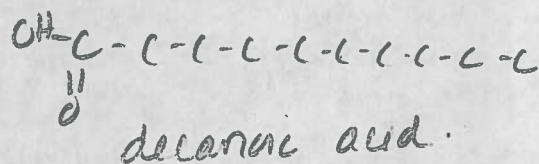 OH-C-C-C-C-C-C-C-C-C-C
||
O
decanoic acid.